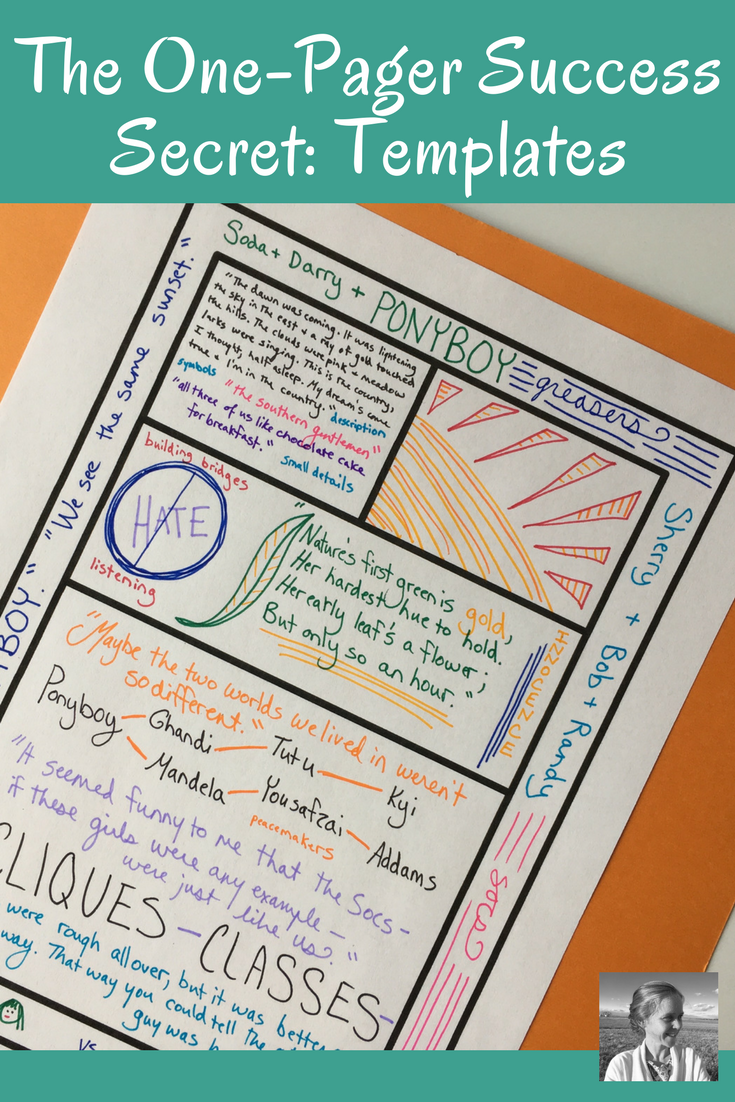 The One-Pager Success
Secret: Templates
Soda + Darry + PONYBOY
greasers
"We see the same sunset."
"The dawn was coming. It was lightening
the sky in the east & a ray of gold touched
the hills. The clouds were pink & meadow
larks were singing. This is the country,
I thought, half asleep. My dream's come
true & I'm in the country."
symbols
description
"the southern gentlemen"
"all three of us like chocolate cake
for breakfast."
small details
building bridges
HATE
listening
"Nature's first green is gold,
Her hardest hue to hold.
Her early leaf's a flower;
But only so an hour."
INNOCENCE
Sherry + Bob + Randy
socs
"Maybe the two worlds we lived in weren't
so different."
Ponyboy
Ghandi
Tutu
Kyi
Mandela
Yousafzai
Addams
peacemakers
"It seemed funny to me that the Socs -
if these girls were any example -
were just like us."
CLIQUES - CLASSES -
were rough all over, but it was better
way. That way you could tell the
guy was
vs